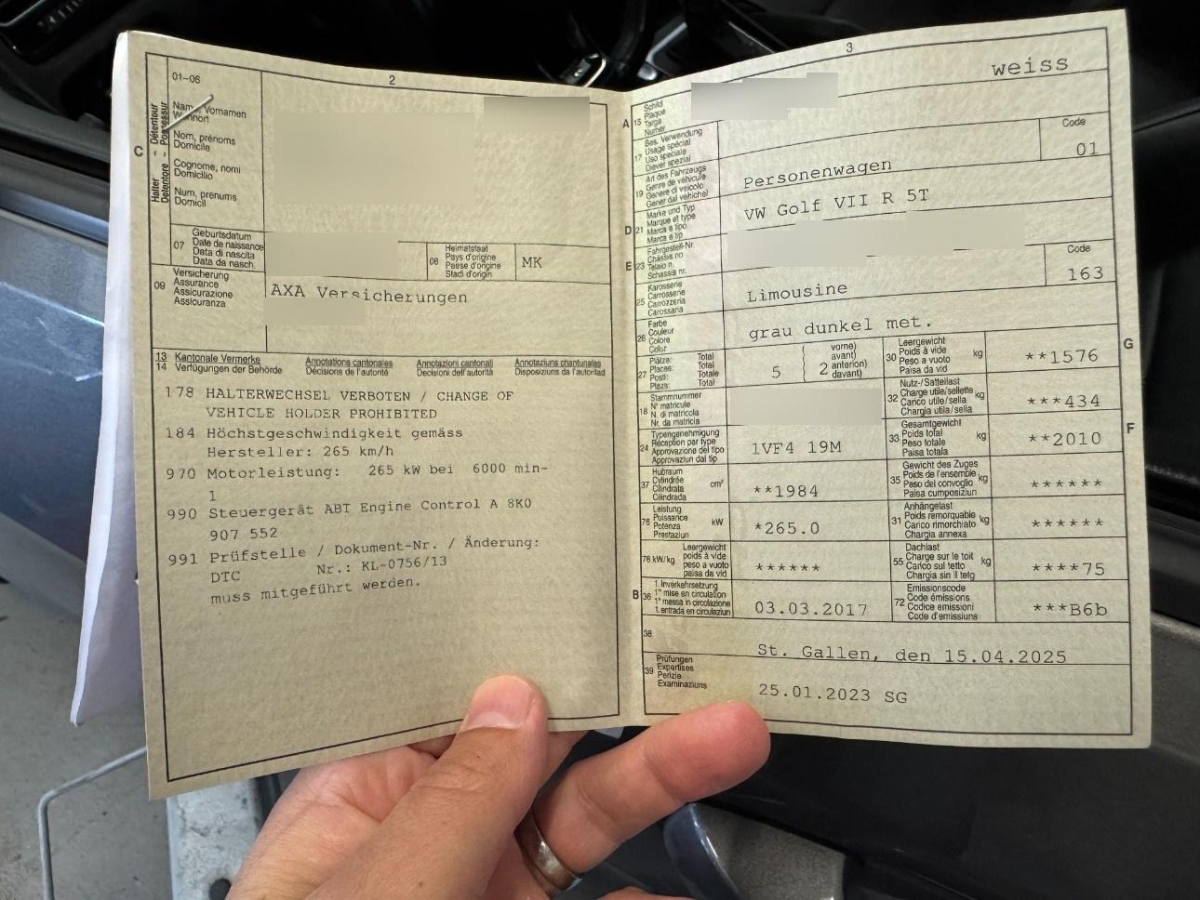 2
01–06
Halter – Détenteur
Detentore – Possessur
C
Name, Vornamen
Wohnort
Nom, prénoms
Domicile
Cognome, nomi
Domicilio
Num, prenums
Domicil
07
Geburtsdatum
Date de naissance
Data di nascita
Data da nasch.
08
Heimatstaat
Pays d'origine
Paese d'origine
Stadi d'origin
MK
09
Versicherung
Assurance
Assicurazione
Assicuranza
AXA Versicherungen
13
14
Kantonale Vermerke
Verfügungen der Behörde
Annotations cantonales
Décisions de l'autorité
Annotazioni cantonali
Decisioni dell'autorità
Annotaziuns chantunalas
Disposiziuns da l'autoritad
178 HALTERWECHSEL VERBOTEN / CHANGE OF
VEHICLE HOLDER PROHIBITED
184 Höchstgeschwindigkeit gemäss
Hersteller: 265 km/h
970 Motorleistung: 265 kW bei 6000 min-
1
990 Steuergerät ABT Engine Control A 8K0
907 552
991 Prüfstelle / Dokument-Nr. / Änderung:
DTC Nr.: KL-0756/13
muss mitgeführt werden.
3
weiss
A
15
Schild
Plaque
Targa
Numer
17
Bes. Verwendung
Usage spécial
Uso speciale
Diever spezial
19
Art des Fahrzeugs
Genre de véhicule
Genere di veicolo
Gener dal vehichel
Personenwagen
Code
01
D
21
Marke und Typ
Marque et type
Marca e tipo
Marca e tip
VW Golf VII R 5T
E
23
Fahrgestell-Nr.
Châssis no
Telaio n.
Schassis nr.
25
Karosserie
Carrosserie
Carrozzeria
Carossaria
Limousine
Code
163
26
Farbe
Couleur
Colore
Colur
grau dunkel met.
27
Plätze: Total
Places: Total
Posti: Totale
Plazs: Total
5
vorne)
avant)
2 anteriori)
davant)
G
30
Leergewicht
Poids à vide
Peso a vuoto
Paisa da vid
kg
**1576
18
Stammnummer
N° matricule
N. di matricola
Nr. da matricla
32
Nutz-/Sattellast
Charge utile/sellette
Carico utile/sella
Chargia utila/sella
kg
***434
24
Typengenehmigung
Réception par type
Approvazione del tipo
Approvaziun dal tip
1VF4 19M
F
33
Gesamtgewicht
Poids total
Peso totale
Paisa totala
kg
**2010
37
Hubraum
Cylindrée
Cilindrata
Cilindrada
cm³
**1984
35
Gewicht des Zuges
Poids de l'ensemble
Peso del convoglio
Paisa cumposiziun
kg
******
76
Leistung
Puissance
Potenza
Prestaziun
kW
*265.0
31
Anhängelast
Poids remorquable
Carico rimorchiato
Chargia annexa
kg
******
78
kW/kg
Leergewicht
poids à vide
peso a vuoto
paisa da vid
******
55
Dachlast
Charge sur le toit
Carico sul tetto
Chargia sin il tetg
kg
****75
B
36
1. Inverkehrsetzung
1re mise en circulation
1a messa in circolazione
1. entrada en circulaziun
03.03.2017
72
Emissionscode
Code émissions
Codice emissioni
Code d'emissiuns
***B6b
38
St. Gallen, den 15.04.2025
39
Prüfungen
Expertises
Perizie
Examinaziuns
25.01.2023 SG